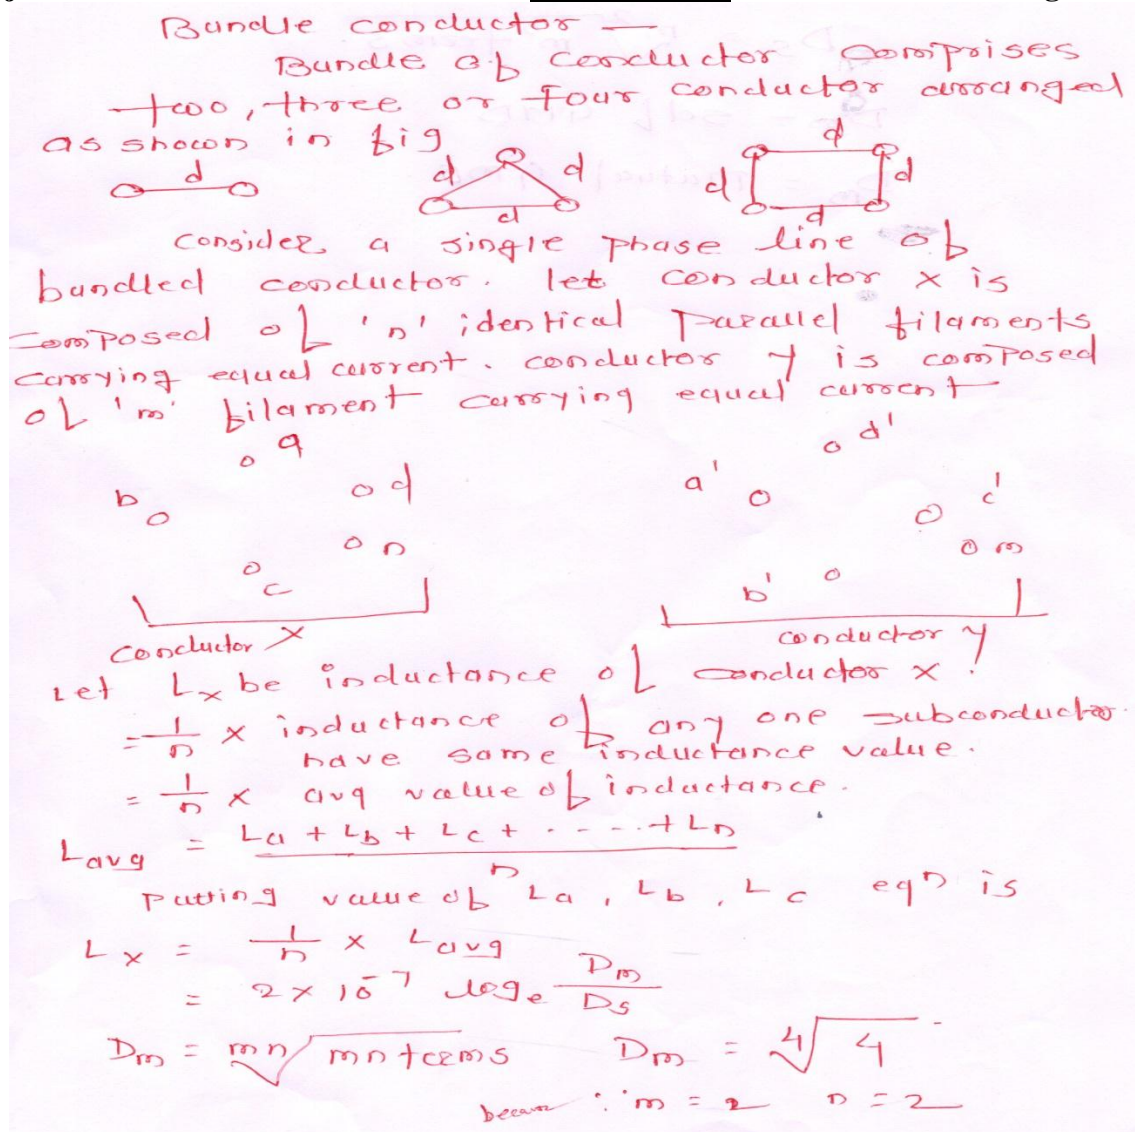 Bundle conductor —
Bundle of conductor comprises
two, three or four conductor arranged
as shown in fig
d
d d d
d d d d
consider a single phase line of
bundled conductor. let conductor x is
composed of 'n' identical parallel filaments
carrying equal current. conductor y is composed
of 'm' filament carrying equal current
a
b
d
n
c
a'
d'
c'
m
b'
conductor x
conductor y
Let Lx be inductance of conductor x.
= 1/n × inductance of any one subconductor
have same inductance value.
= 1/n × avg value of inductance.
Lavg = La + Lb + Lc + ......+ Ln / n
putting value of La, Lb, Lc eqn is
Lx = 1/n × Lavg
= 2 × 10⁻⁷ loge Dm/Ds
Dm = mn√mn terms Dm = 4√4
∵ m = 2 n = 2